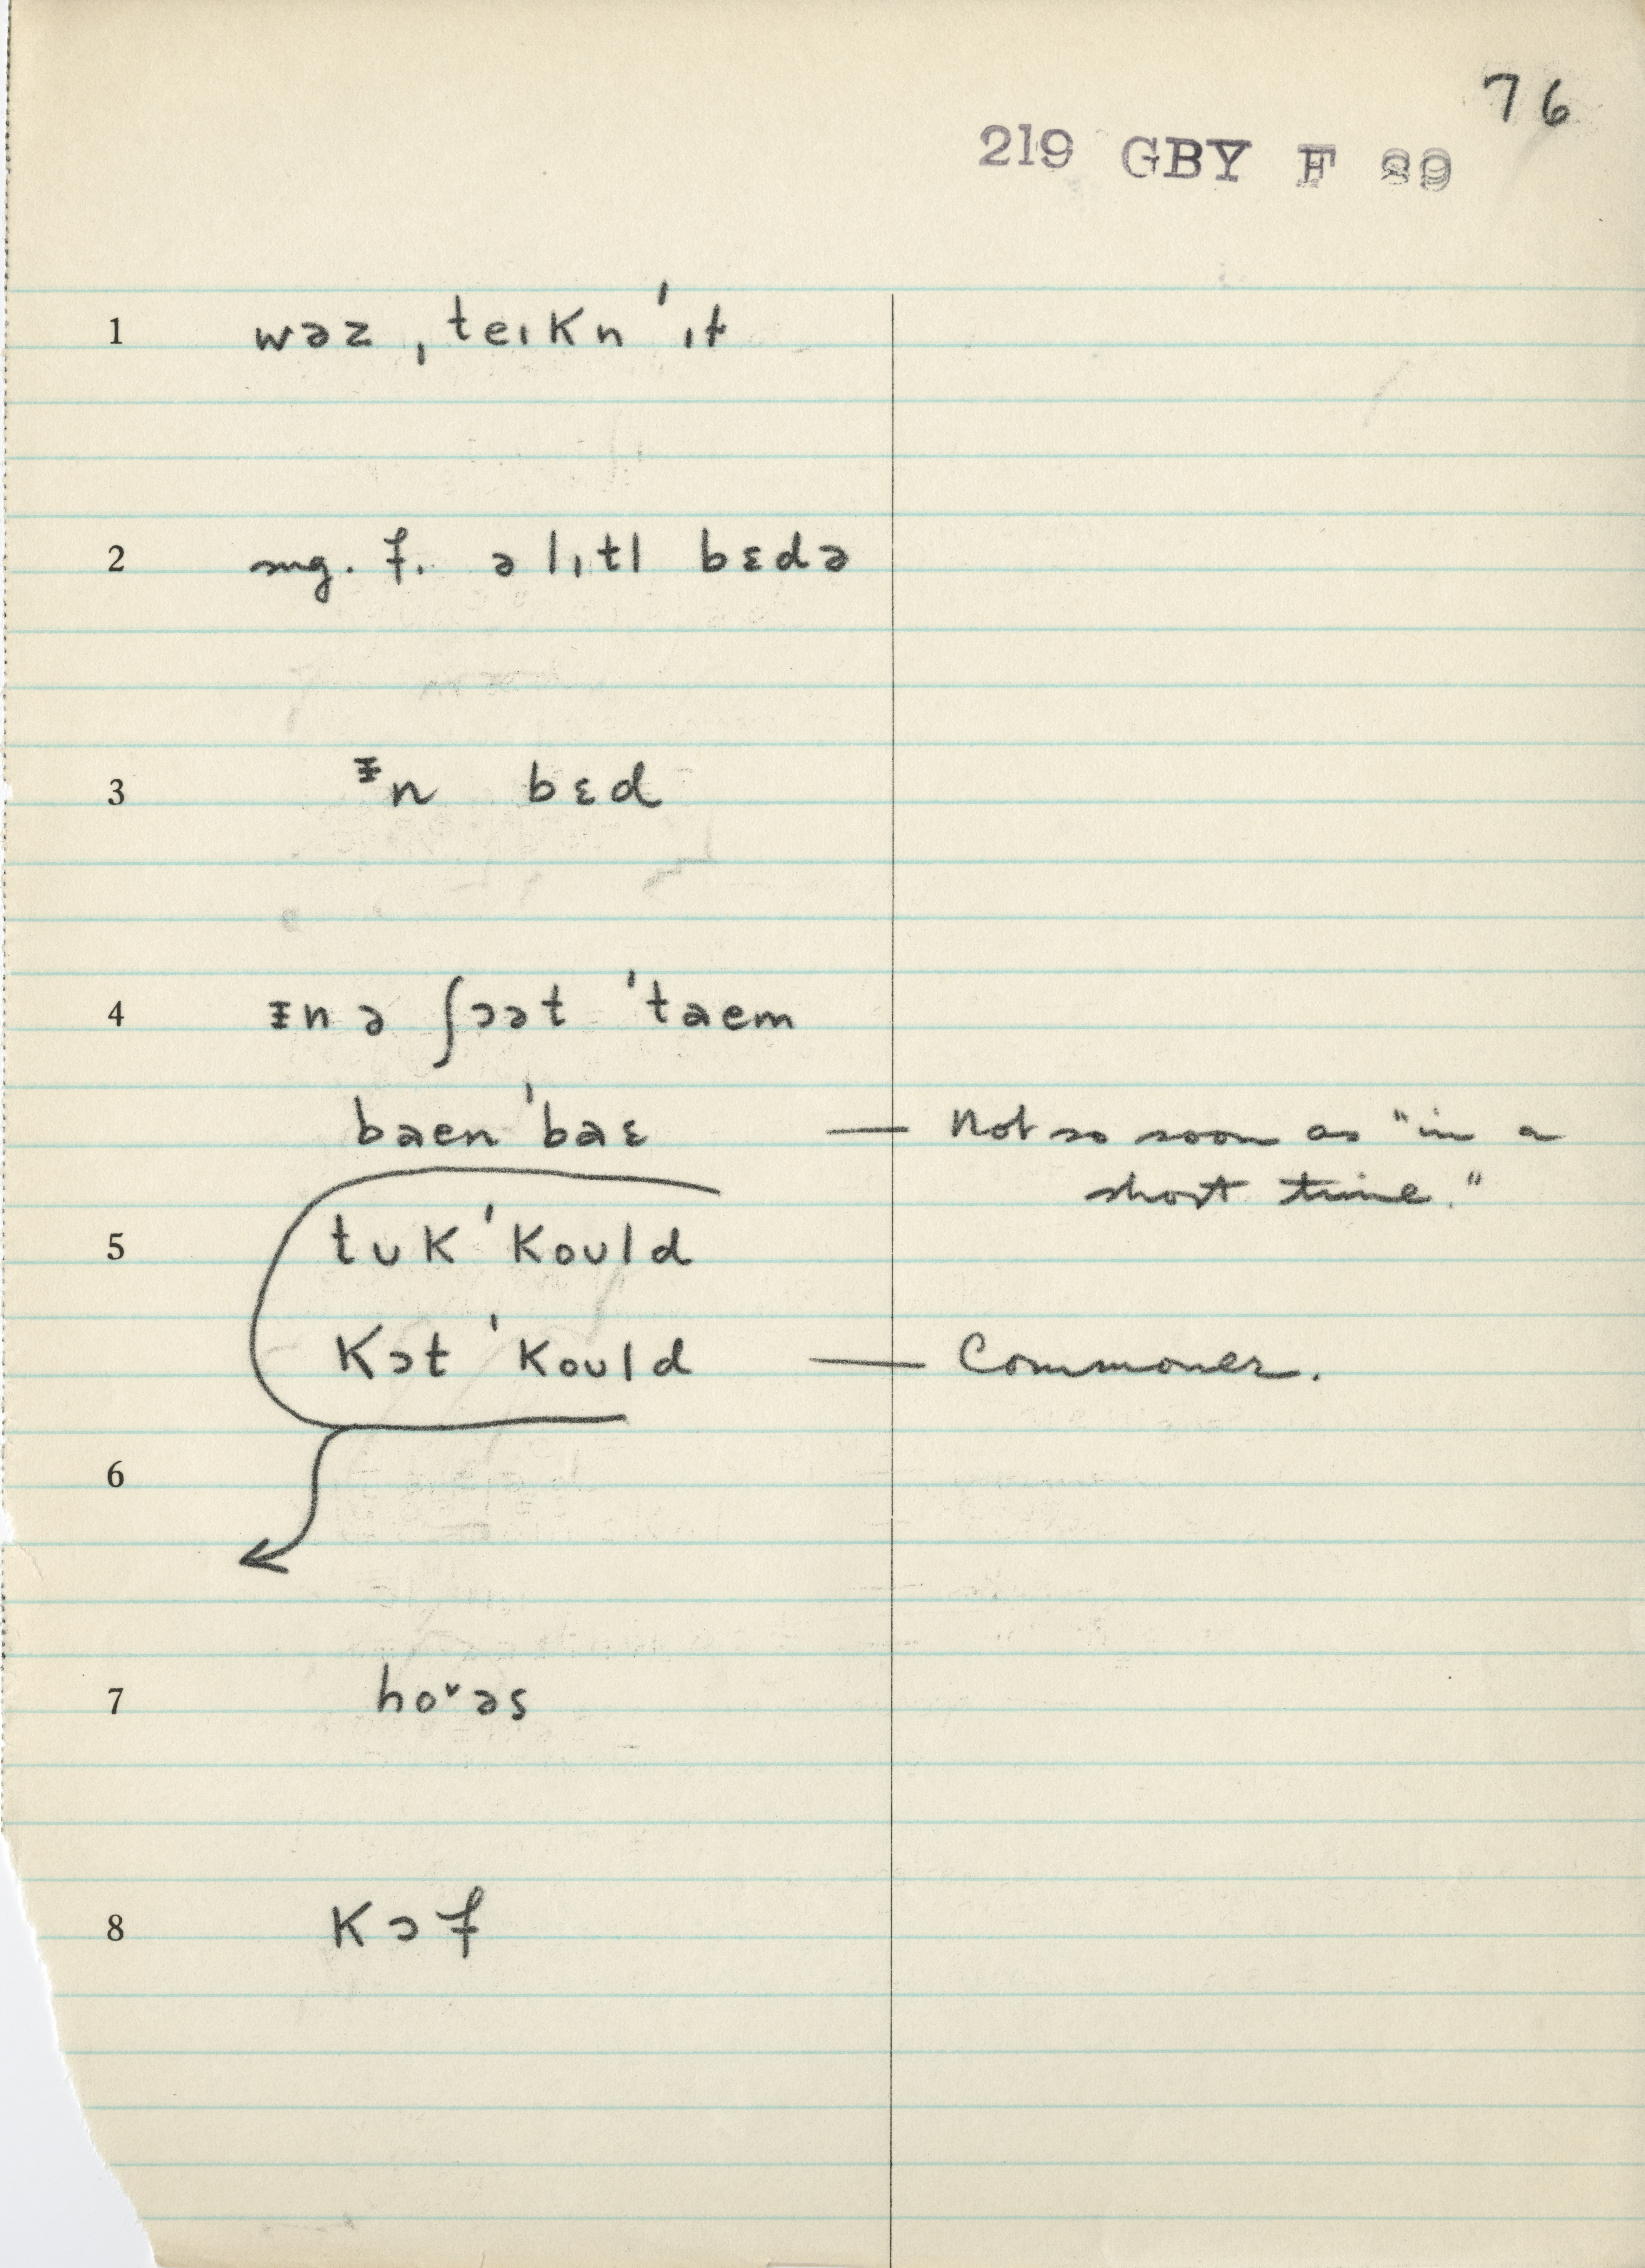 76
219 GBY F 89
1 wəz ˌteɪkn ˈɪt
2 sug. f. ə lɪtl bɛdə
3 ᵻn bɛd
4 ᵻn ə ʃɔət ˈtaem
baen ˈbaɛ — Not so soon as "in a
short time."
5 tʊk ˈkoʊld
kɔt ˈkoʊld — Commoner.
6
7 hoˇəs
8 kɔf